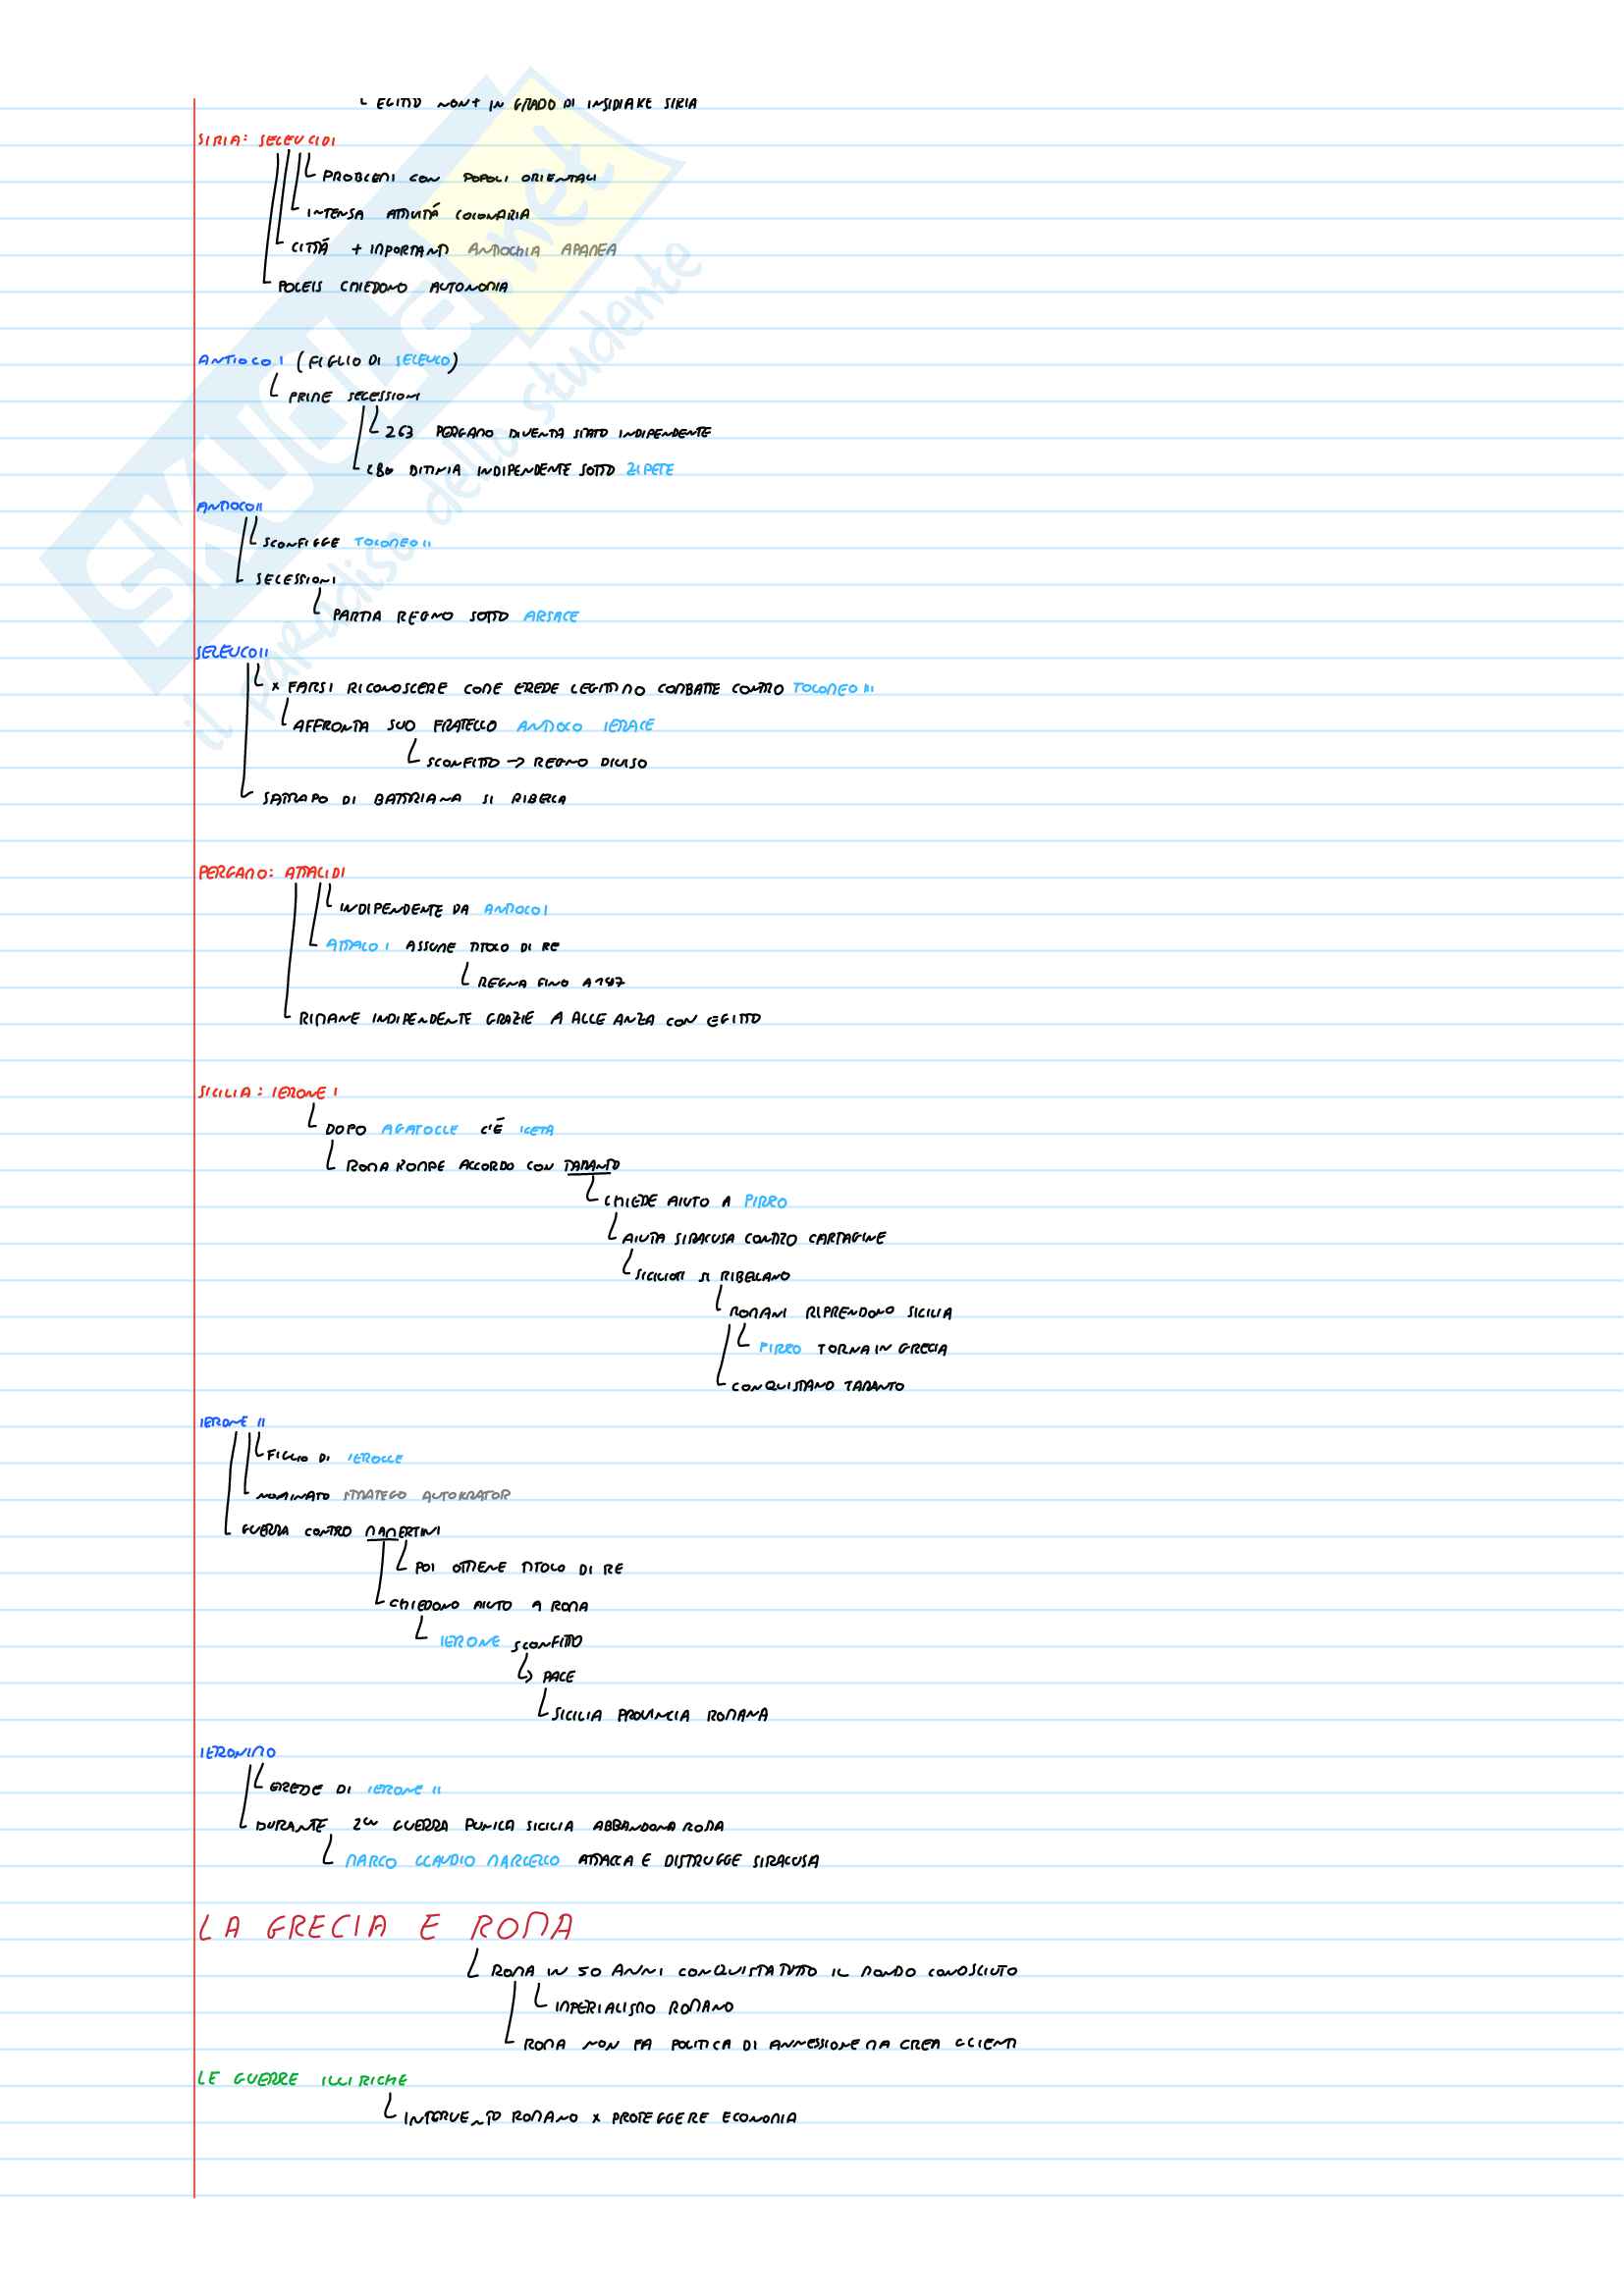 EGITTO NON + IN GRADO DI INSIDIARE SIRIA
SIRIA: SELEUCIDI
PROBLEMI CON POPOLI ORIENTALI
INTENSA ATTIVITÁ COLONARIA
CITTÁ + IMPORTANTI ANTIOCHIA APAMEA
POLEIS CHIEDONO AUTONOMIA
ANTIOCO I (FIGLIO DI SELEUCO)
PRIME SECESSIONI
263 PERGAMO DIVENTA STATO INDIPENDENTE
280 BITINIA INDIPENDENTE SOTTO ZIPETE
ANTIOCO II
SCONFIGGE TOLOMEO II
SECESSIONI
PARTIA REGNO SOTTO ARSACE
SELEUCO II
x FARSI RICONOSCERE COME EREDE LEGITTIMO COMBATTE CONTRO TOLOMEO III
AFFRONTA SUO FRATELLO ANTIOCO IERACE
SCONFITTO → REGNO DIVISO
SATRAPO DI BATTRIANA SI RIBELLA
PERGAMO: ATTALIDI
INDIPENDENTE DA ANTIOCO I
ATTALO I ASSUME TITOLO DI RE
REGNA FINO A 197
RIMANE INDIPENDENTE GRAZIE A ALLEANZA CON EGITTO
SICILIA: IERONE I
DOPO AGATOCLE C'É ICETA
ROMA ROMPE ACCORDO CON TARANTO
CHIEDE AIUTO A PIRRO
AIUTA SIRACUSA CONTRO CARTAGINE
SICILIOTI SI RIBELLANO
ROMANI RIPRENDONO SICILIA
PIRRO TORNA IN GRECIA
CONQUISTANO TARANTO
IERONE II
FIGLIO DI IEROCLE
NOMINATO STRATEGO AUTOKRATOR
GUERRA CONTRO MAMERTINI
POI OTTIENE TITOLO DI RE
CHIEDONO AIUTO A ROMA
IERONE SCONFITTO
→ PACE
SICILIA PROVINCIA ROMANA
IERONIMO
EREDE DI IERONE II
DURANTE 2a GUERRA PUNICA SICILIA ABBANDONA ROMA
MARCO CLAUDIO MARCELLO ATTACCA E DISTRUGGE SIRACUSA
LA GRECIA E ROMA
ROMA IN 50 ANNI CONQUISTA TUTTO IL MONDO CONOSCIUTO
IMPERIALISMO ROMANO
ROMA NON FA POLITICA DI ANNESSIONE MA CREA CLIENTI
LE GUERRE ILLIRICHE
INTERVENTO ROMANO x PROTEGGERE ECONOMIA
SKUOLA.net
il paradiso dello studente